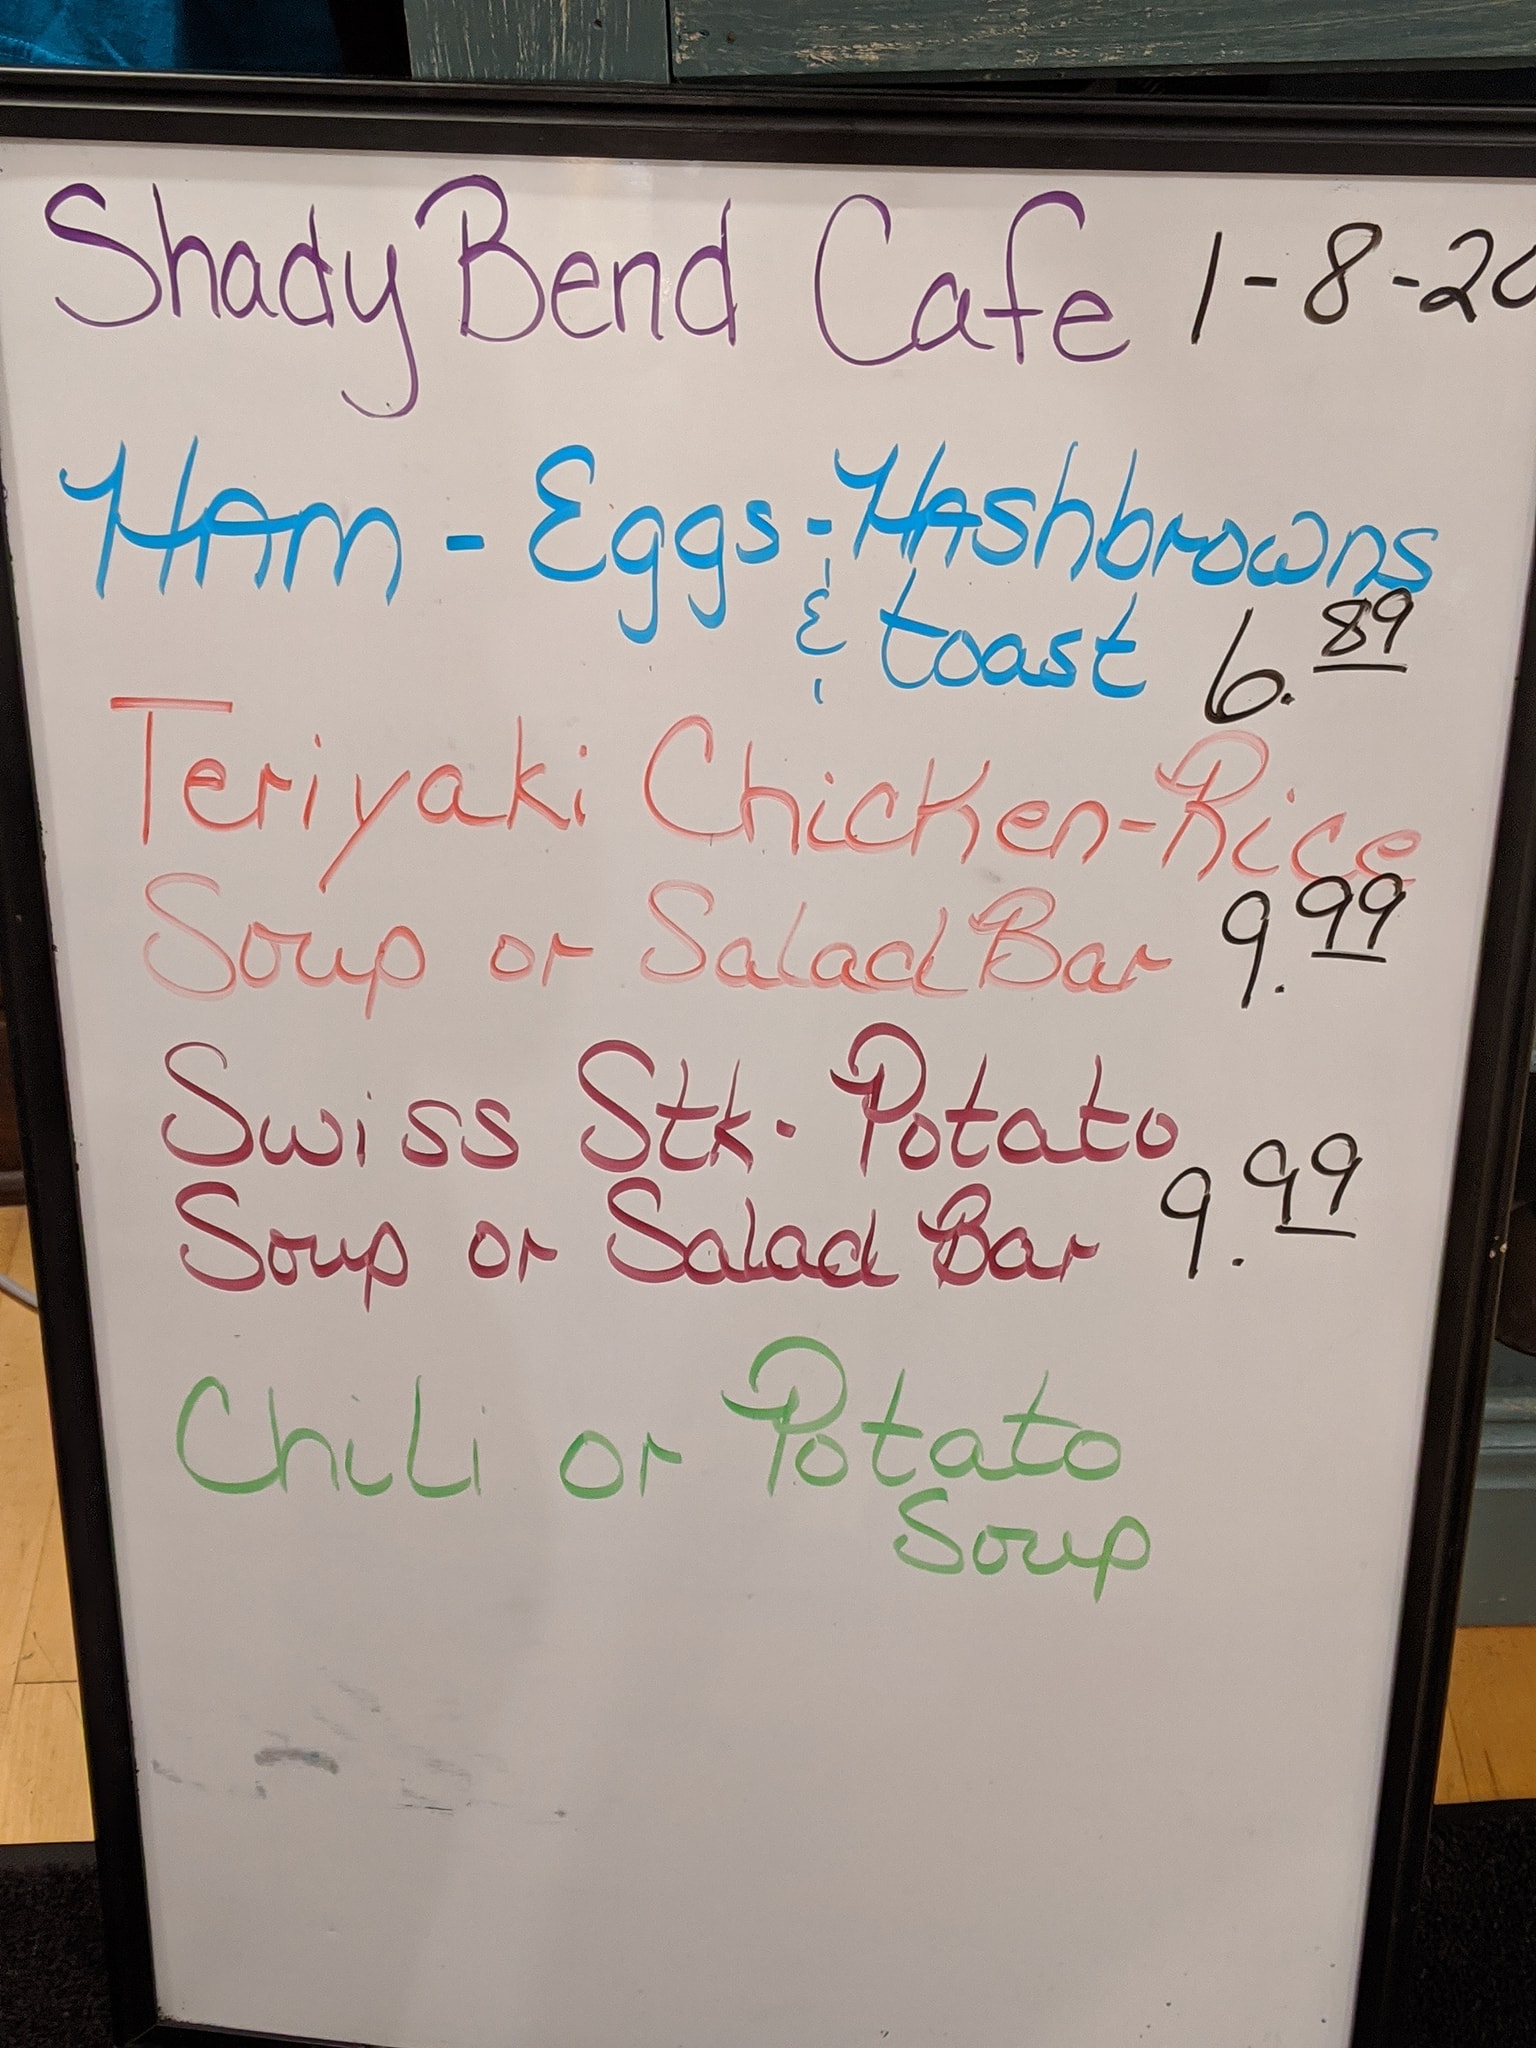 Shady Bend Cafe 1-8-20
HAM - Eggs - HAshbrowns
& toast 6.89
Teriyaki Chicken-Rice
Soup or Salad Bar 9.99
Swiss Stk. Potato
Soup or Salad Bar 9.99
Chili or Potato
Soup